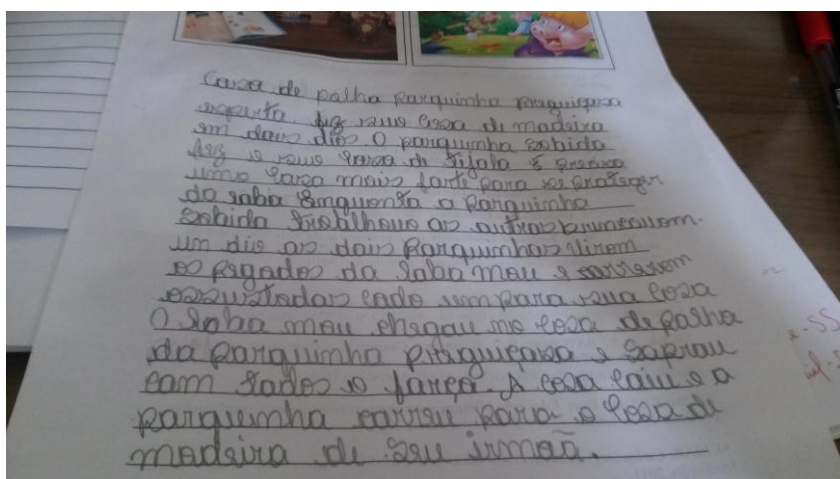 Casa de palha Parquinha preguiçosa
esperta fez sua casa de madeira
em dois dias O parquinha sabida
fez a sua casa de tijala E precisa
uma casa mais forte para se proteger
da loba Enquanta a Parquinha
Sabida trabalhava as outras brincavam.
um dia as dois Parquinhas viram
as pegadas da Loba mau e correram
assustadas cada um para sua casa
O Loba mau chegau na casa de palha
da Parquinha preguiçosa e saprau
cam tadas a farça. A casa caiu e a
parquinha correu para a casa de
madeira de seu irmaã.